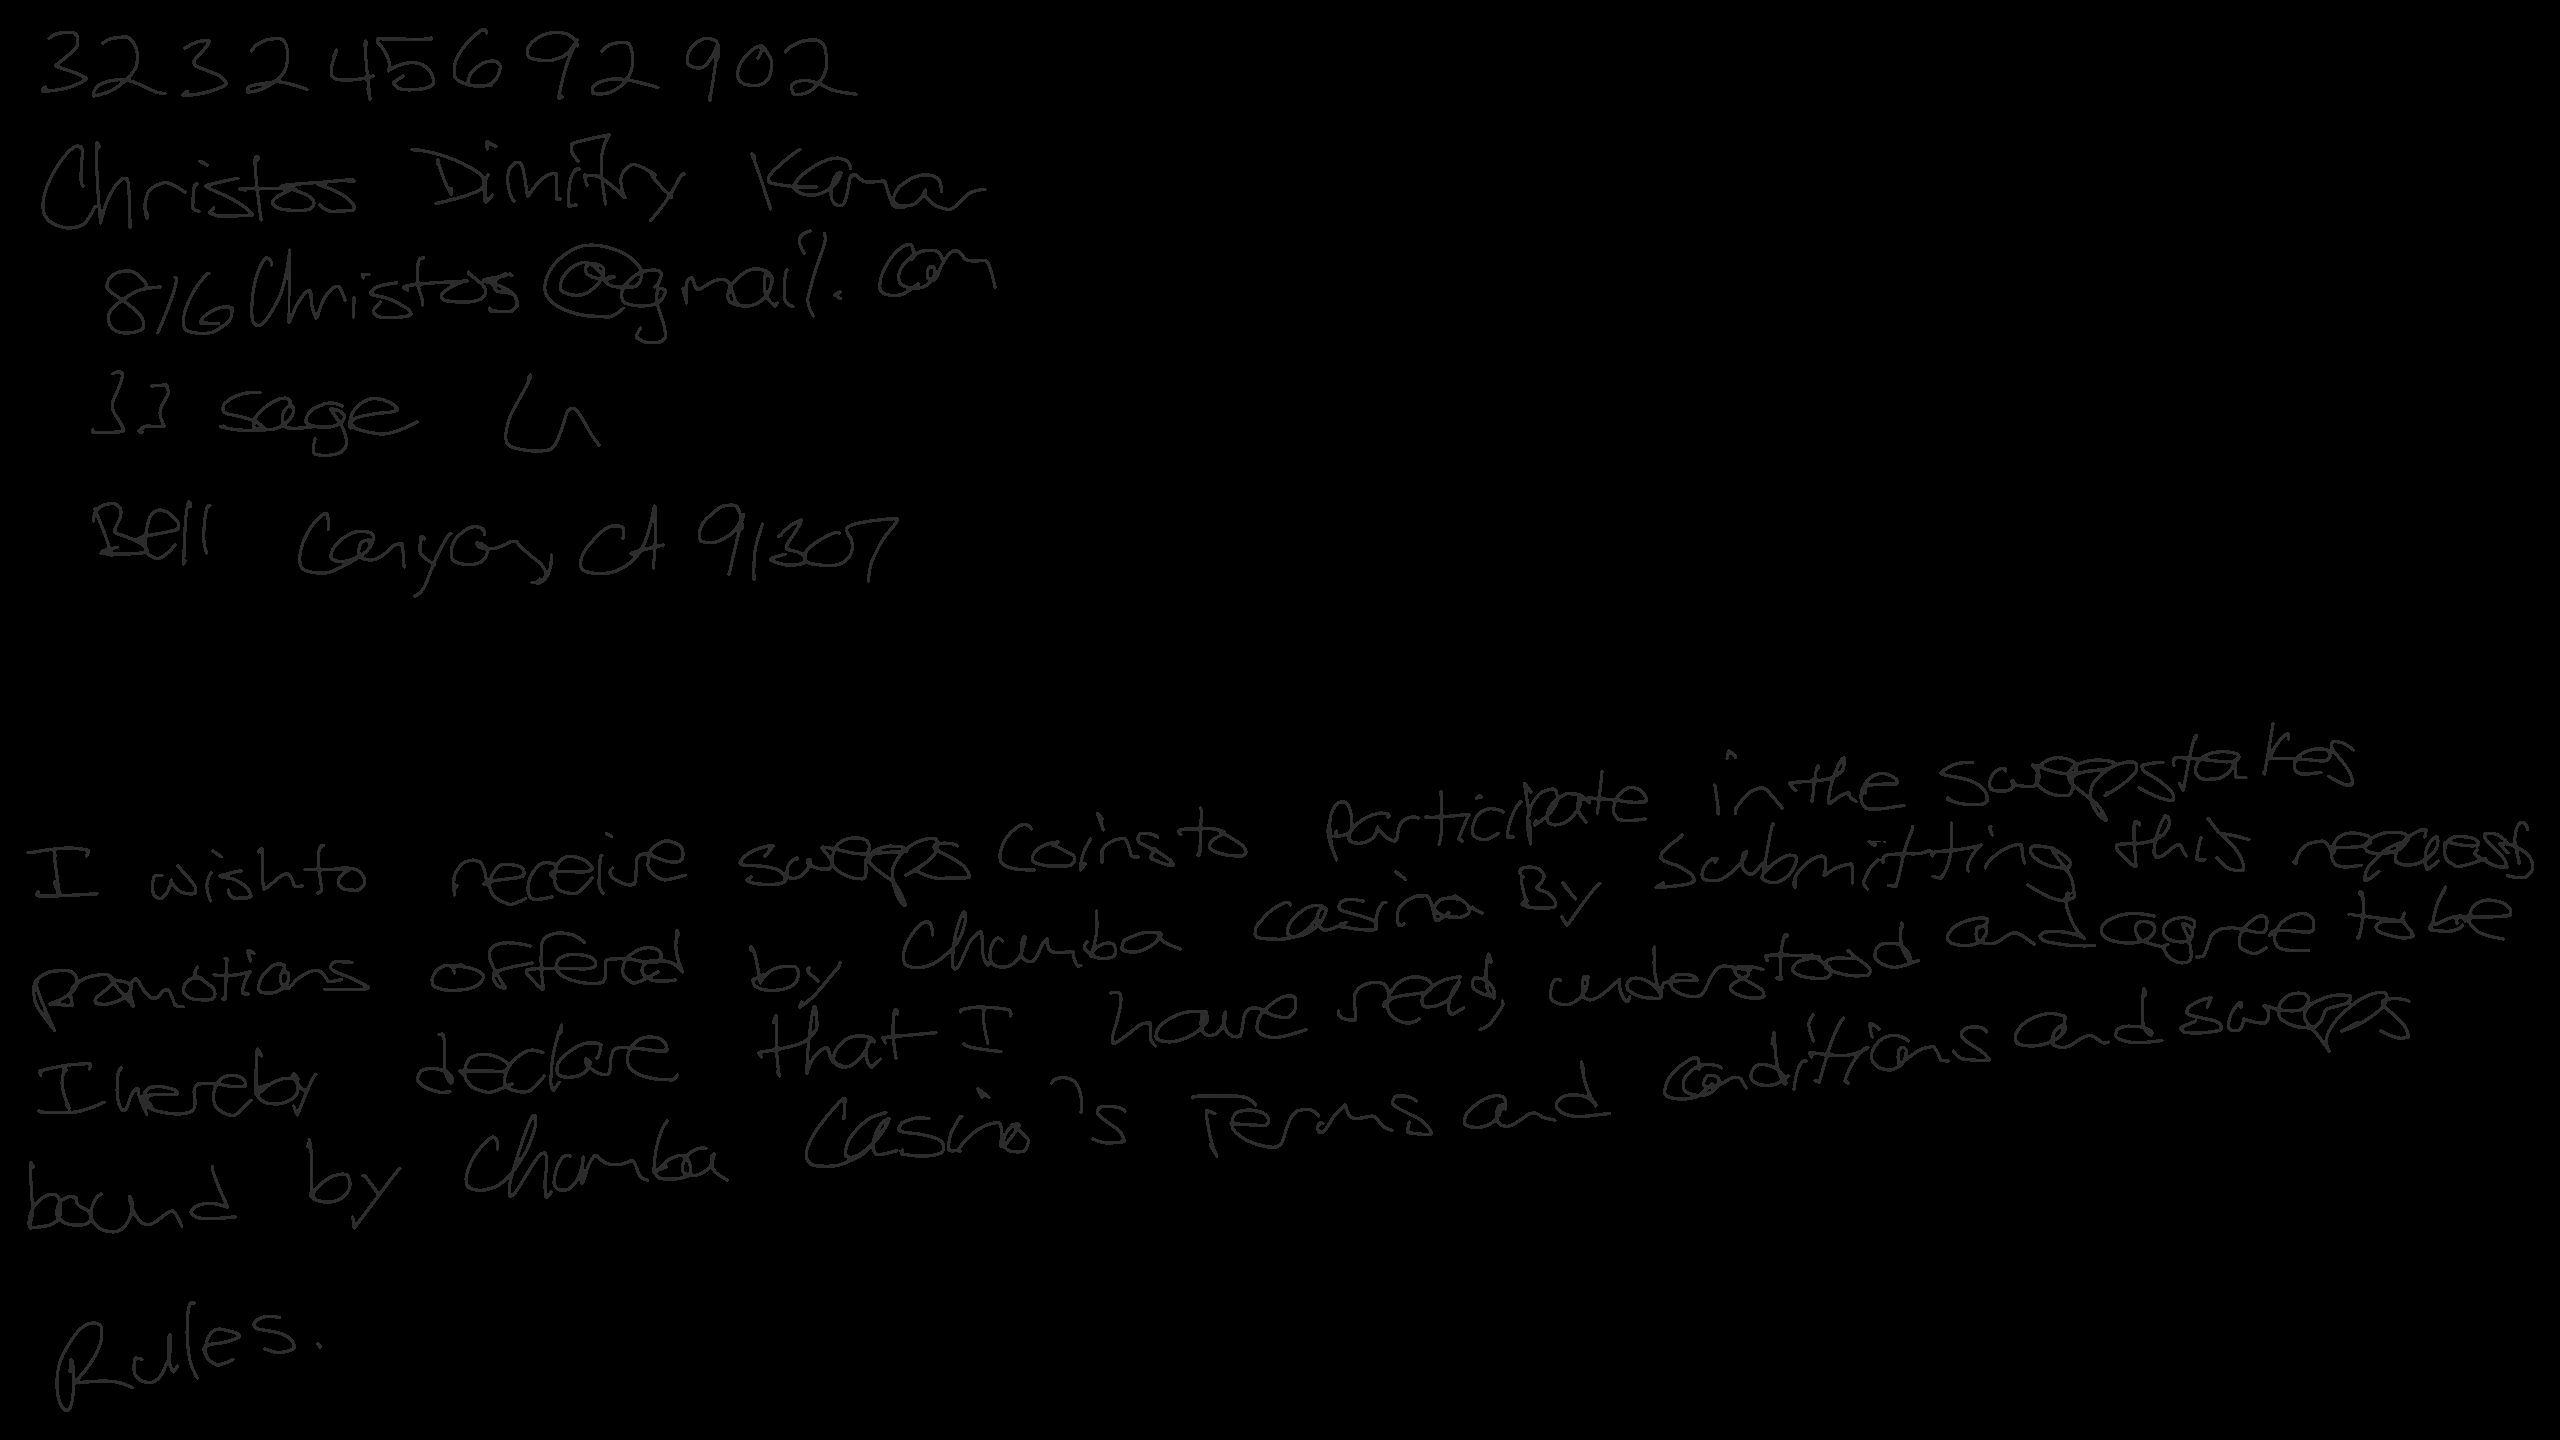 323245692902
Christos Dimitry Kamar
816Christos@gmail.com
33 sage Ln
Bell Canyon, CA 91307
I wish to receive sweeps Coins to participate in the sweepstakes
promotions offered by Chumba Casino By submitting this request
I hereby declare that I have read, understood and agree to be
bound by Chumba Casino's Terms and conditions and sweeps
Rules.